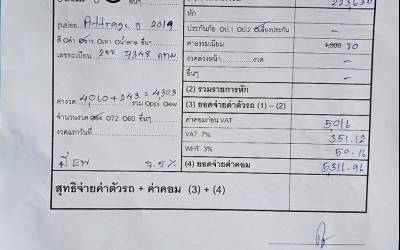 223630
หัก
รุ่นย่อย Attrage ปี 2019
ประกันภัย ป1. ป2
สี ดำ ขาว เทา น้ำตาล อื่นๆ
ค่าธรรมเนียม 1,500 50
เลขทะเบียน 7348 กทม
งวดล่วงหน้า งวด -
อื่นๆ -
(2) รวมรายการหัก
ค่างวด 4,060 + 243 = 4303
รวม Oppl Oew
(3) ยอดจ่ายค่าตัวรถ (1) – (2)
จำนวนงวด O72 O60 อื่นๆ
ค่าคอมก่อน VAT 5016
งวดแรกวันที่
VAT 7% 351.12
WHT 3% 50.16
มี EW 7.5%
(4) ยอดจ่ายค่าคอม 5311.96
สุทธิจ่ายค่าตัวรถ + ค่าคอม (3) + (4)